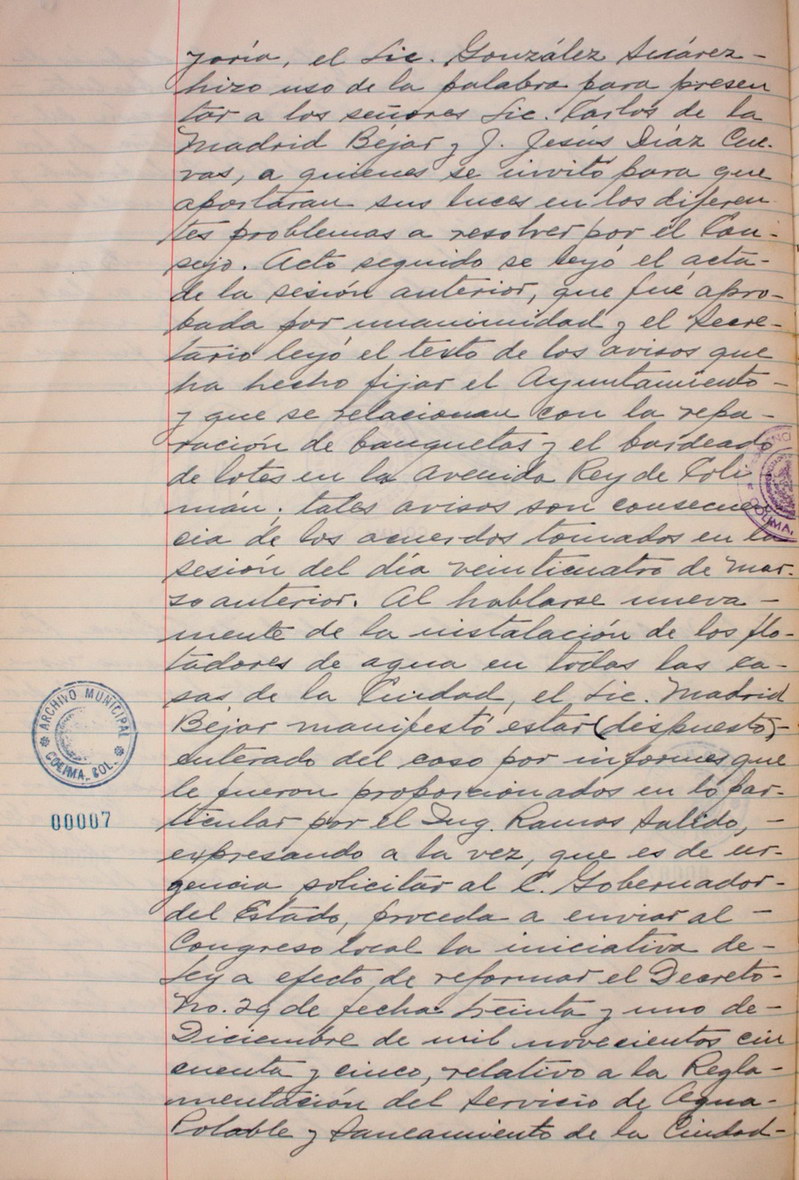 yoría, el Lic. González Suárez-
hizo uso de la palabra para presen
tar a los señores Lic. Carlos de la
Madrid Béjar y J. Jesús Díaz Cue-
vas, a quienes se invitó para que
aportaran sus luces en los diferen-
tes problemas a resolver por el Con-
sejo. Acto seguido se leyó el acta-
de la sesión anterior, que fué apro-
bada por unanimidad y el Secre-
tario leyó el texto de los avisos que
ha hecho fijar el Ayuntamiento-
y que se relacionan con la repa-
ración de banquetas y el bardeado
de lotes en la Avenida Rey de Coli
mán; tales avisos son consecuen-
cia de los acuerdos tomados en la
sesión del día veinticuatro de mar-
zo anterior. Al hablarse nueva-
mente de la instalación de los flo-
tadores de agua en todas las ca-
sas de la Ciudad, el Lic. Madrid
Béjar manifestó estar (dispuesto)-
enterado del caso por informes que
le fueron proporcionados en lo par-
ticular por el Ing. Ramos Salido,-
expresando a la vez, que es de ur-
gencia solicitar al C. Gobernador-
del Estado, proceda a enviar al-
Congreso local la iniciativa de-
Ley a efecto de reformar el Decreto-
No. 29 de fecha treinta y uno de-
Diciembre de mil novecientos cin
cuenta y cinco, relativo a la Regla-
mentación del Servicio de Agua-
Potable y Saneamiento de la Ciudad-
ARCHIVO MUNICIPAL
COLIMA, COL.
00007
COLIMA,